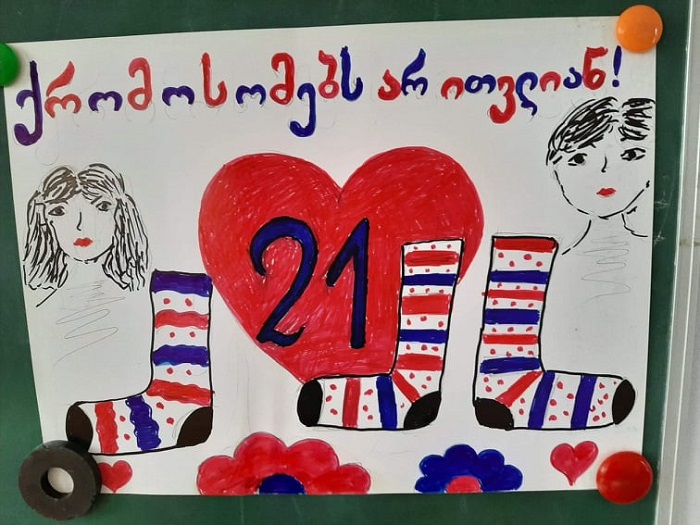 ქრომოსომებს არ ითვლიან!
21